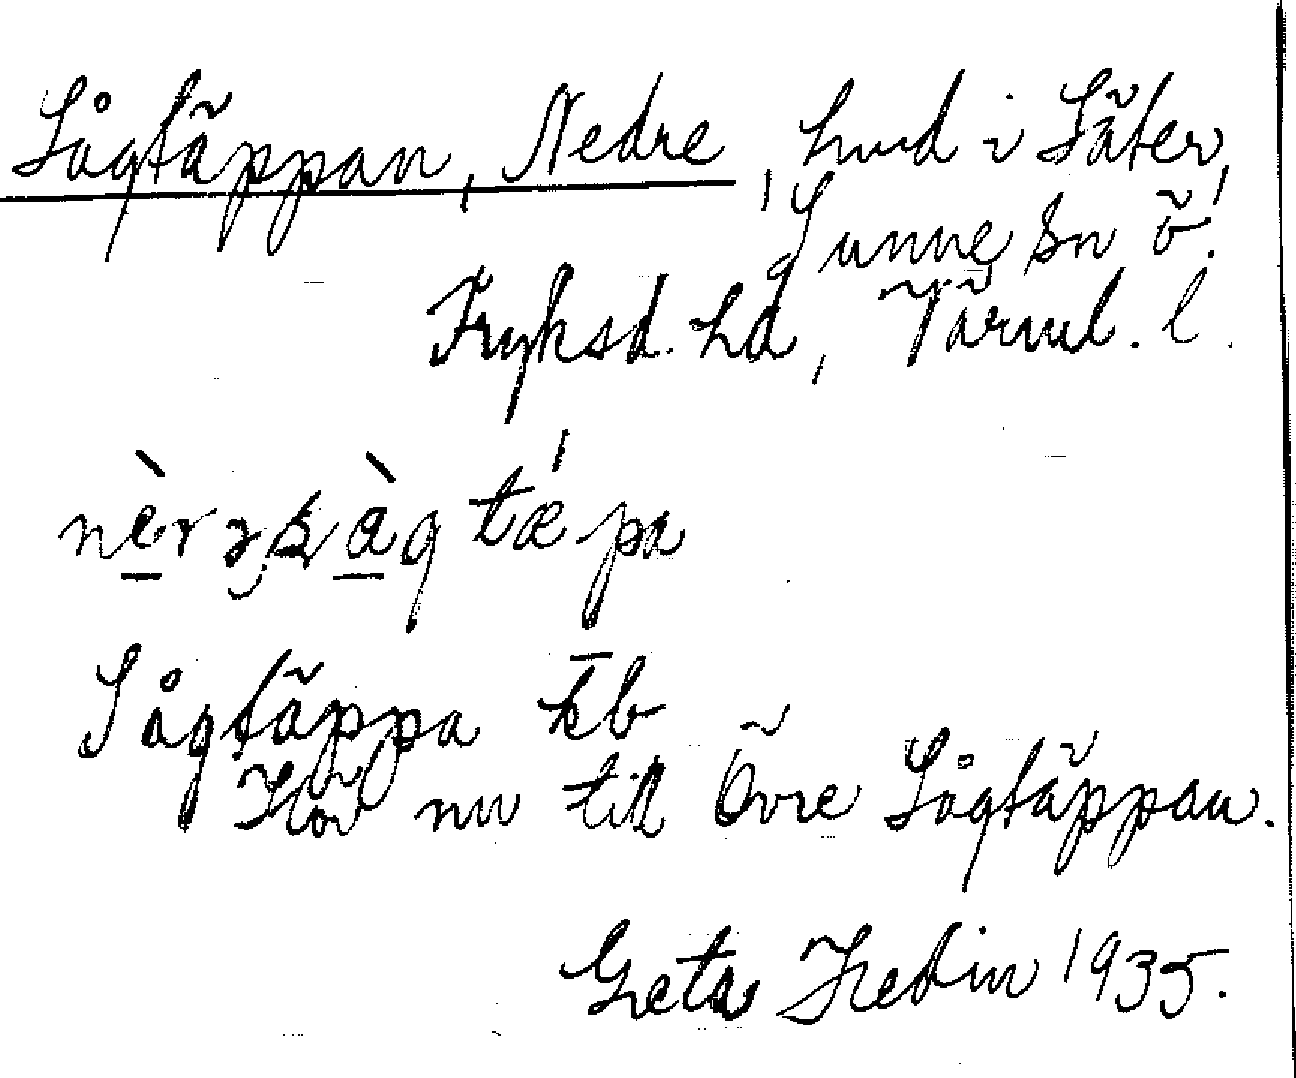 Sågtäppan, Nedre, hmd i Säter,
Sunne sn ö.
Fryksd. hd, Värml. l.
Sågtäppa kb
Hör nu till Övre Sågtäppan.
Greta Hedin 1935.